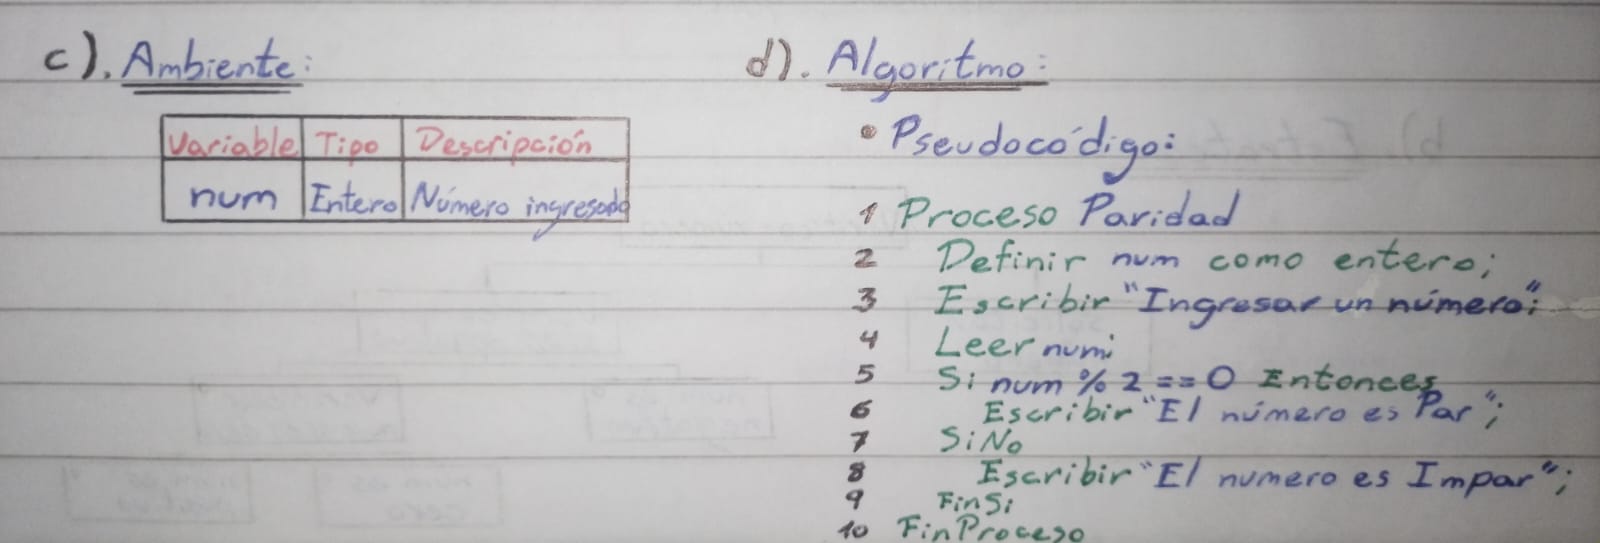 c). Ambiente:
Variable Tipo Descripción
num Entero Número ingresado
d). Algoritmo:
• Pseudocódigo:
1 Proceso Paridad
2 Definir num como entero;
3 Escribir "Ingresar un número";
4 Leer num;
5 Si num % 2 == 0 Entonces
6 Escribir "El número es Par";
7 SiNo
8 Escribir "El numero es Impar";
9 FinSi
10 FinProceso